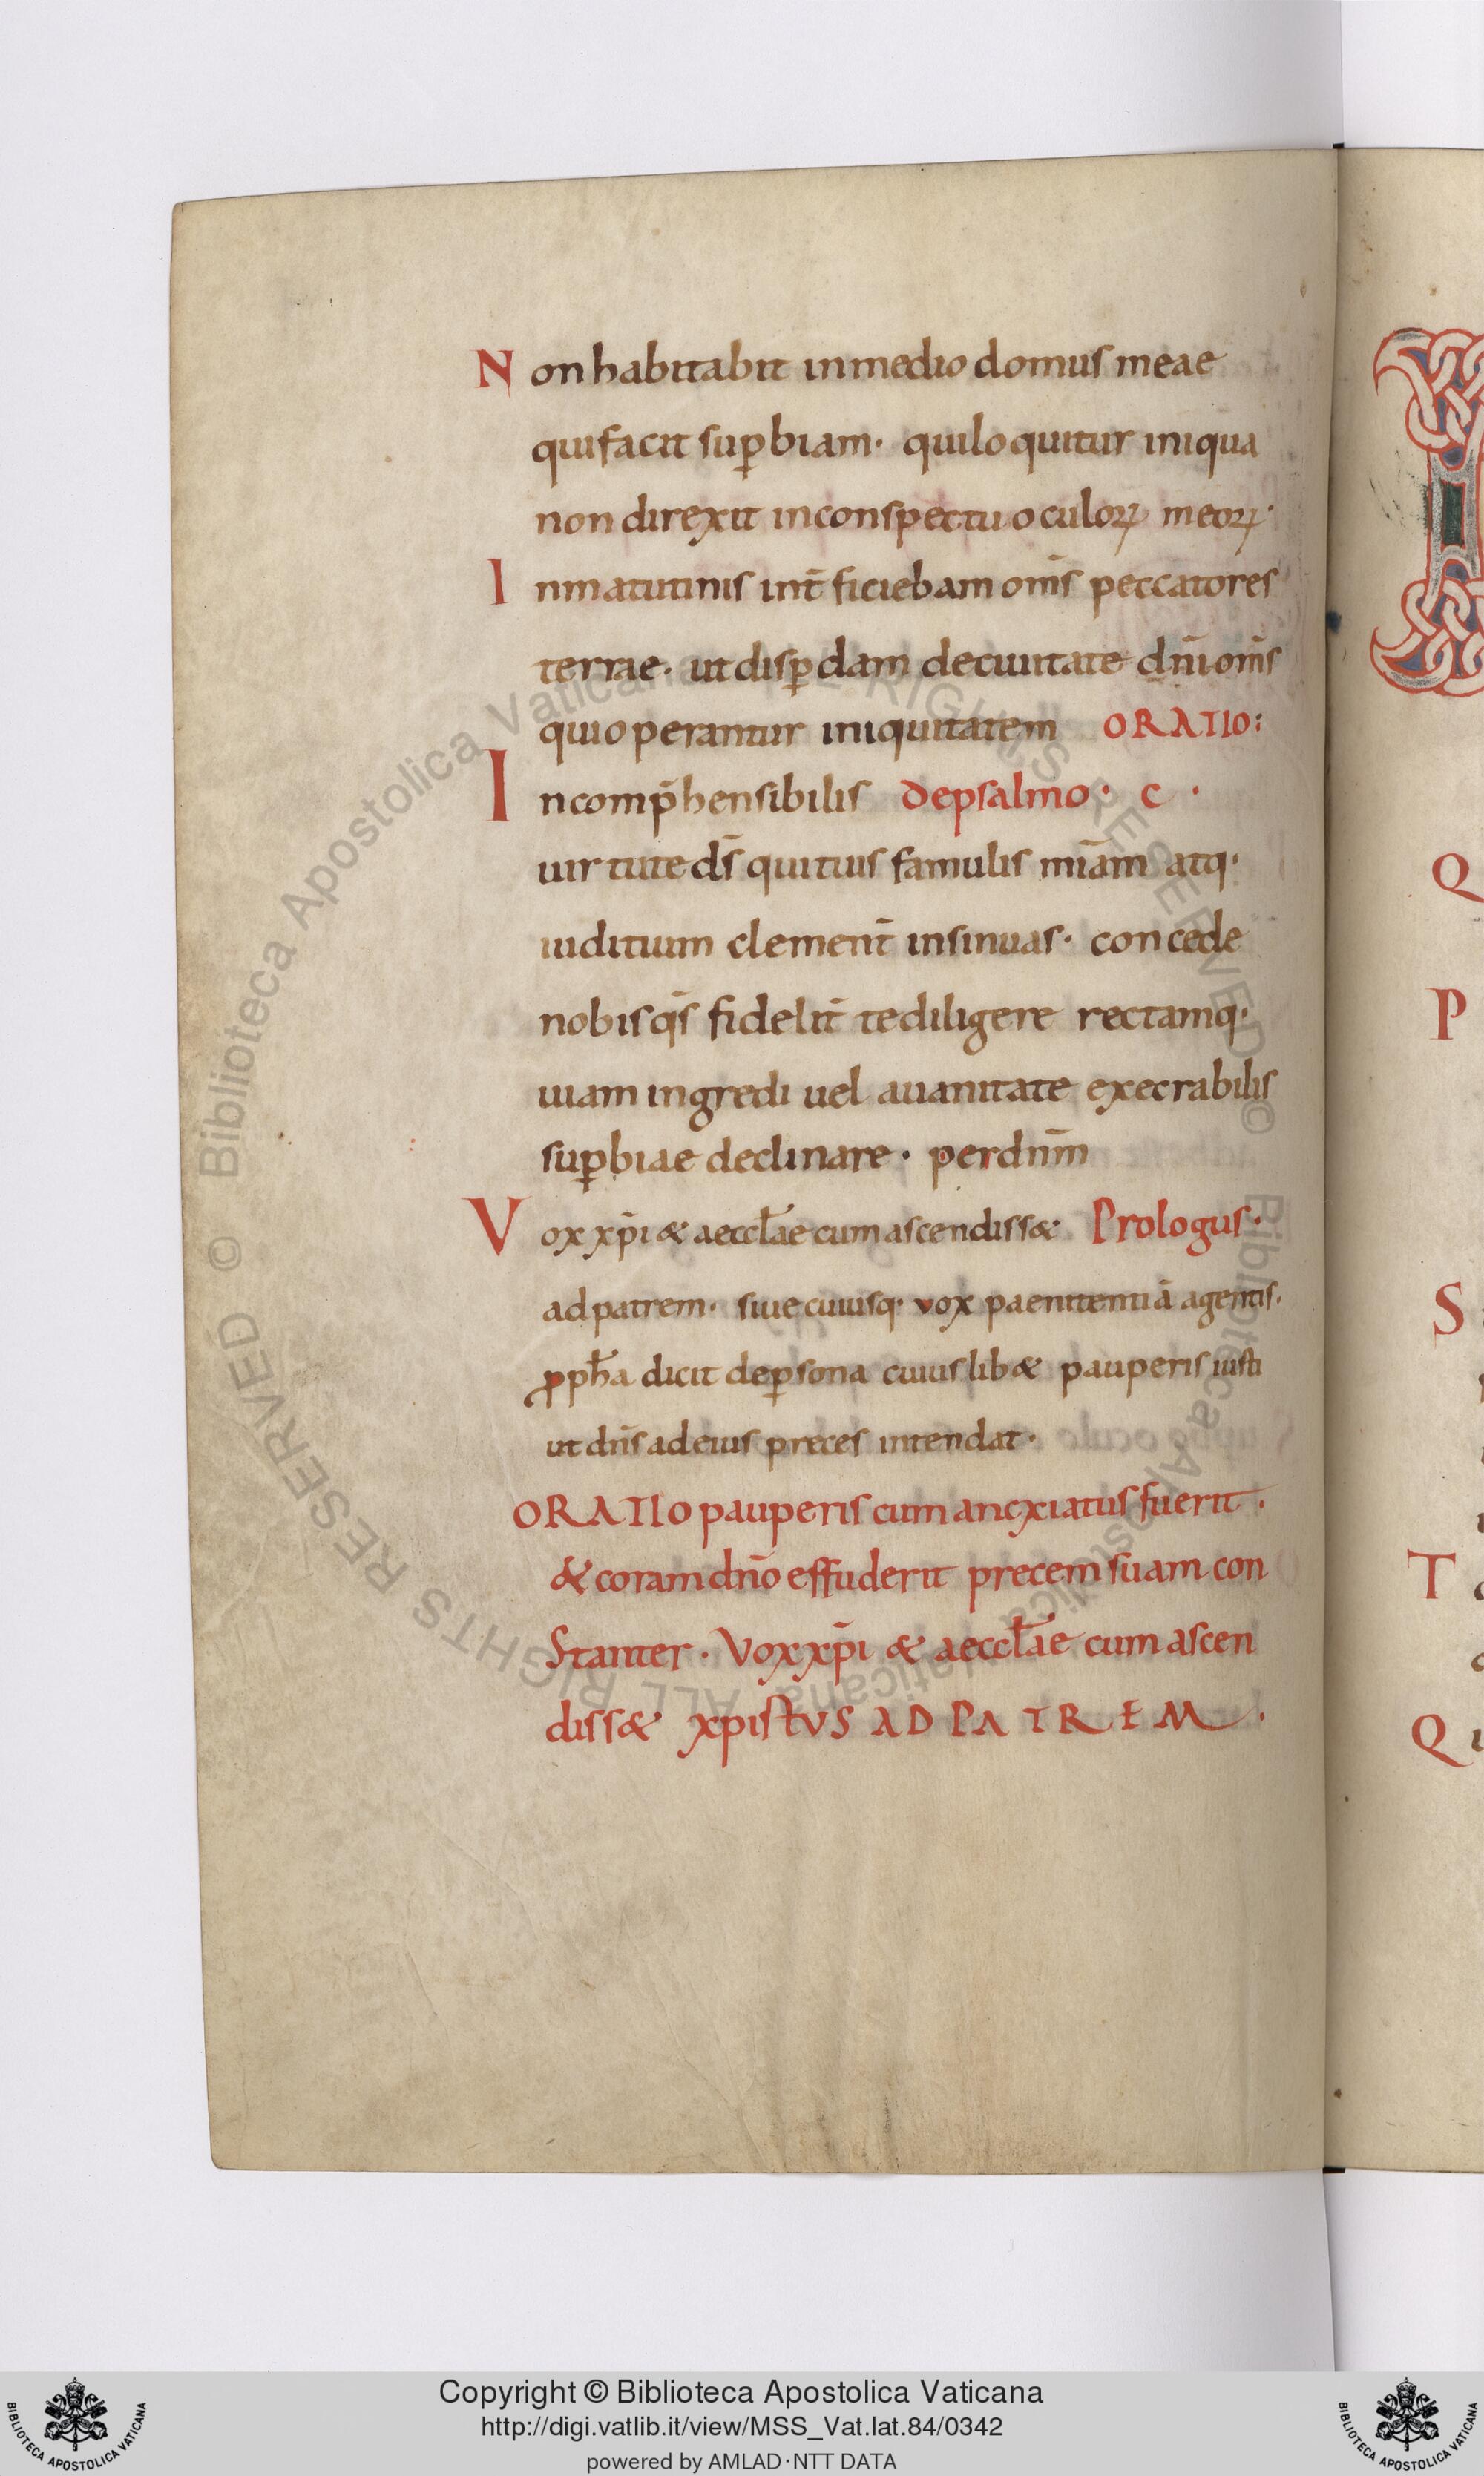 Non habitabit in medio domus meae
qui facit suꝑbiam· qui loquitur iniqua
non direxit in conspectu oculoꝝ meoꝝ·
In matutinis int̄ficiebam om̄s peccatores
terrae· ut disꝑdam de ciuitate dn̄i om̄s
qui operantur iniquitatem ORATIO:
Incomp̄hensibilis de psalmo· c ·
uirtute ds̄ qui tuis famulis miām atq·
iuditium clement̄ insinuas· concede
nobis qs̄ fidelit̄ te diligere rectamq·
uiam ingredi uel a uanitate execrabilis
suꝑbiae declinare· per dnm̄
Vox xp̄i & aeccl̄ae cum ascendiss& Prologus·
ad patrem· siue cuiusq· vox paenitentiā agentis·
ꝓph̄a dicit de ꝑsona cuius lib& pauperis iusti
ut dn̄s ad eius preces intendat·
ORATIO pauperis cum ancxiatus fuerit·
& coram dn̄o effuderit precem suam con
Stanter· Vox xp̄i & aeccl̄ae cum ascen
diss& xpistVS AD PATREM·
Q
P
S
T
Q
© Biblioteca Apostolica Vaticana ALL RIGHTS RESERVED
© Biblioteca Apostolica Vaticana ALL RIGHTS RESERVED
Copyright © Biblioteca Apostolica Vaticana
http://digi.vatlib.it/view/MSS_Vat.lat.84/0342
powered by AMLAD·NTT DATA
BIBLIOTECA APOSTOLICA VATICANA
BIBLIOTECA APOSTOLICA VATICANA